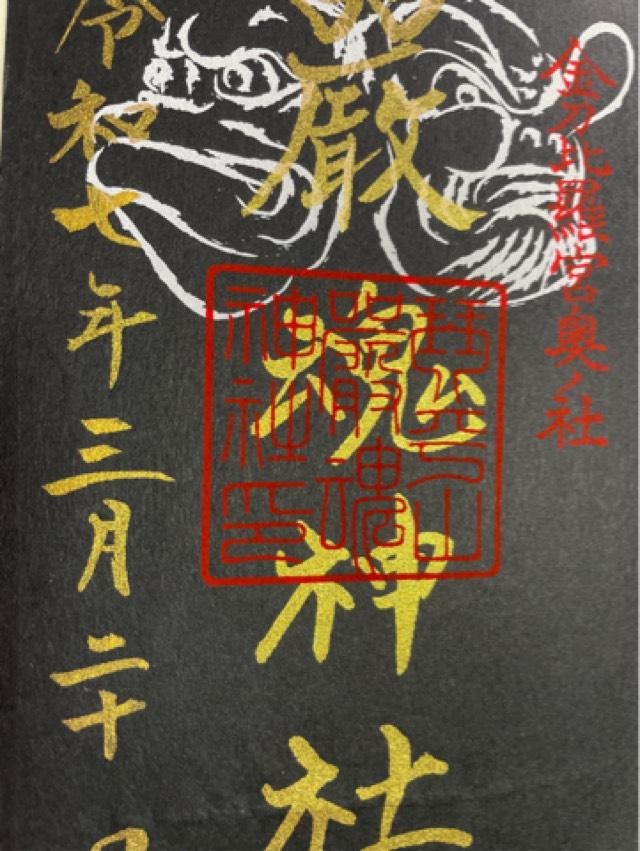 金刀比羅宮奥ノ社
嚴魂神社
琴平山
嚴魂
神社印
令和七年三月二十日